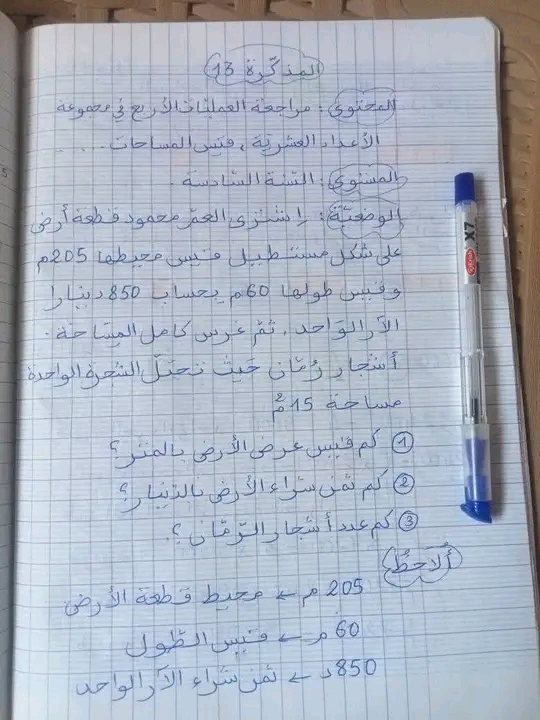 المذكّرة 13
المحتوى : مراجعة العمليّات الأربع في مجموعة
الأعداد العشريّة ، قيس المساحات ....
المستوى : السّنة السّادسة .
الوضعيّة : اشترى العمّ محمود قطعة أرض
على شكل مستطيل قيس محيطها 205م
وقيس طولها 60م بحساب 850 دينارا
الآر الواحد . ثمّ غرس كامل المساحة .
أشجار رُمّان حيث تحتلّ الشجرة الواحدة
مساحة 15م²
① كم قيس عرض الأرض بالمتر؟
② كم ثمن شراء الأرض بالدّينار؟
③ كم عدد أشجار الرّمّان ؟.
ألاحظُ
205 م ← محيط قطعة الأرض
60 م ← قيس الطّول
850د ← ثمن شراء الآر الواحد
X7